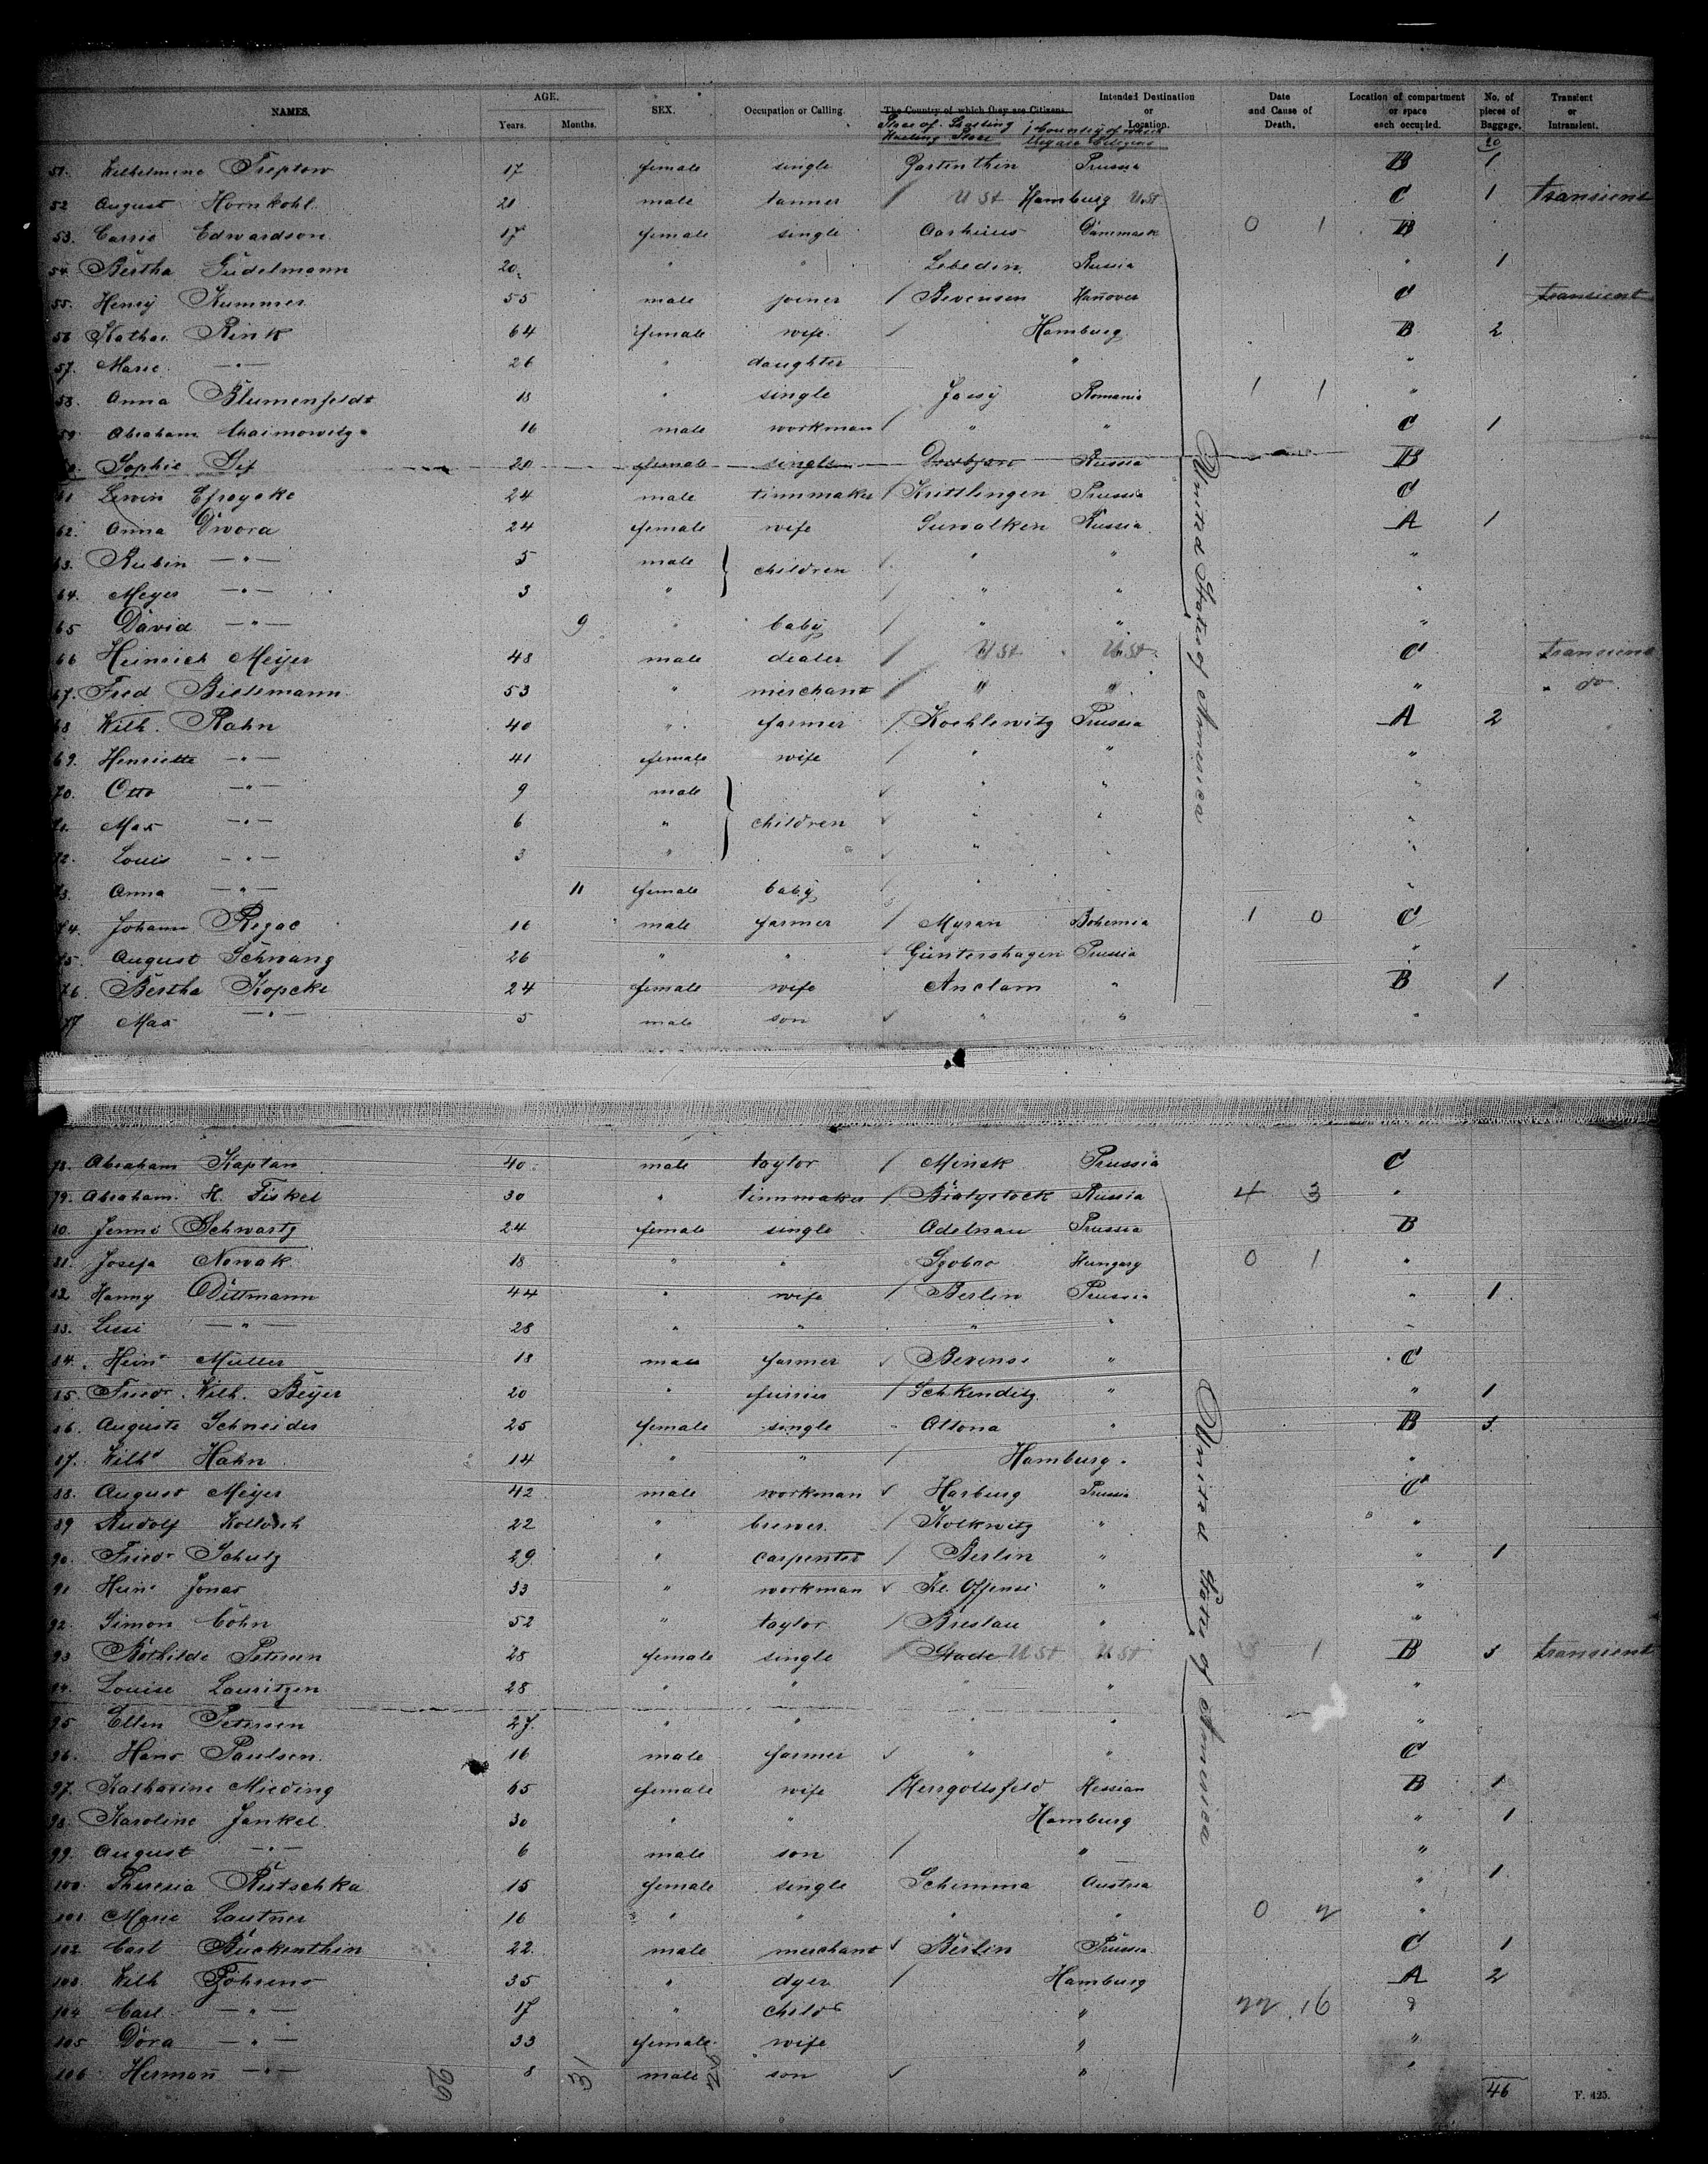 NAMES. AGE. Years. Months. SEX. Occupation or Calling. The Country of which they are Citizens. Intended Destination or Location. Date and Cause of Death. Location of compartment or space each occupied. No. of pieces of Baggage. Transient or Intransient.
Place of Starting Country of which
they are Citizens
20
51. Wilhelmine Treptow 17 female single Gartenthin Prussia B 1
52 August Hornkohl 21 male tanner / U St Hamburg U.St. C 1 transient
53. Carrie Edwardson 17 female single Aarhuus Dänemark 0 1 B
54. Bertha Güdelmann 20 " " Lebedin Russia " 1
55. Henry Kummer 55 male joiner / Bevensen Hañover C transient
56 Kathar. Rink 64 female wife / Hamburg B 2
57. Marie —"— 26 " daughter " "
58. Anna Blumenfeldt 18 " single Jassy Romania 1 1 "
59. Abraham Chaimowitz 16 male workman / " " C 1
60. Sophie Gif 20 female single Russia B
61 Lewin Efroycke 24 male tinnmaker / Krittlingen Prussia C
62. Anna Dwora 24 female wife Suwalken Russia A 1
63. Rubin —"— 5 male } children / " " "
64. Meyer —"— 3 " / " " "
65 David —"— 9 " baby / " " "
66 Heinrich Meyer 48 male dealer / U St U.St. C transient
67. Fred Bielemann 53 " merchant / " " " " do
68 Wilh. Rahn 40 " farmer / Kochlewitz Prussia A 2
69. Henriette —"— 41 female wife / " " "
70. Otto —"— 9 male ✓ " " "
71. Max —"— 6 " } children ✓ " " "
72. Louis —"— 3 " ✓ " " "
73. Anna —"— 11 female baby / " " "
74. Johann Rezac 16 male farmer / Myran Bohemia 1 0 C
75. August Schwang 26 " " Güntershagen Prussia "
76. Bertha Kopcke 24 female wife Anclam " B 1
77 Max —"— 5 male son ✓ " " "
78. Abraham Kaplan 40 male taylor / Minsk Prussia C
79. Abraham. H. Fiskel 30 " tinnmaker / Bialystock Russia 4 3 "
80. Jenni Schwartz 24 female single Adelnau Prussia B
81. Josefa Nowak 18 " " Szobao Hungary 0 1 "
82. Hanny Dittmann 44 " wife / Berlin Prussia " 1
83. Lusi —"— 28 " " " " "
84. Heinr Müller 18 male farmer ✓ Bevense " C
85. Friedr. Wilh. Beyer 20 " furrier / Schkeuditz " " 1
86. Auguste Schneider 25 female single Altona " B 3
87. Wilhe Hahn 14 " " / Hamburg. "
88. August Meyer 42 male workman ✓ Harburg Prussia C
89 Rudolf Kollosch 22 " brewer / Kolkwitz " "
90. Friedr Schulz 29 " carpenter / Berlin " " 1
91 Hein. Jonas 33 " workman ✓ Kl. Offense " "
92. Simon Cohn 52 " taylor / Breslau " "
93 Bothilde Petersen 28 female single / Stade U St U St 1 B 3 transient
94. Louise Lauritzen 28 " " " " "
95 Ellen Petersen 27. " " " " "
96. Hans Paulsen 16 male farmer ✓ " " C
97. Katharine Mieding 65 female wife / Herrgottsfeld Hessian B 1
98. Karoline Jankel 30 " " Hamburg " 1
99. August —"— 6 male son / " "
100. Theresia Rutschka 15 female single Schimma Austria " 1
101. Marie Lautner 16 " " " " 0 2 "
102. Carl Bückenthin 22 male merchant ✓ Berlin Prussia C 1
103. Wilh Fohrens 35 " dyer / Hamburg A 2
104 Carl —"— 17 " child " 22 16 "
105 Dora —"— 33 female wife " "
106 Hermañ —"— 8 male son ✓ " "
United States of America
United States of America
29 31 24
46
F. 425.